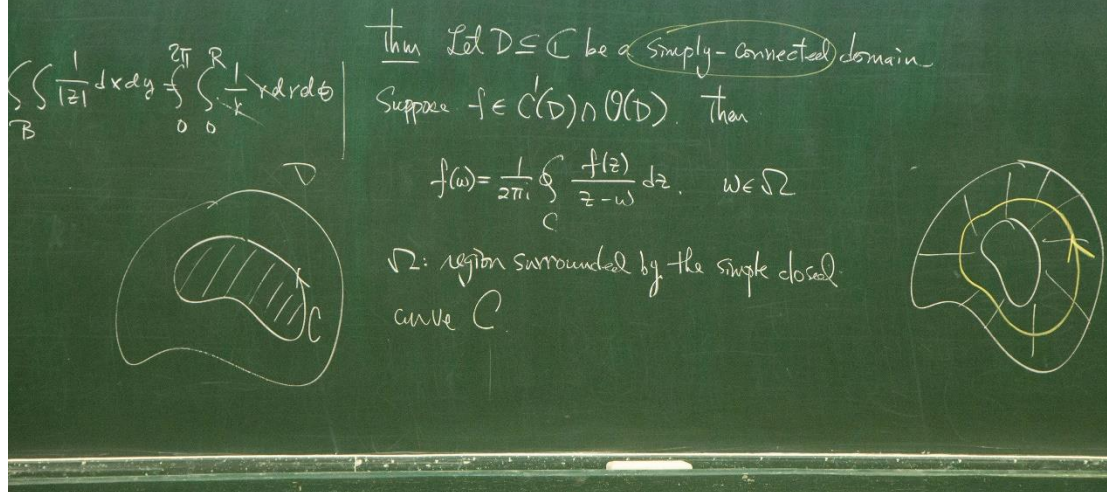 ∬_B 1/|z| dxdy = ∫_0^{2π} ∫_0^R 1/r r dr dθ
D
C
Thm Let D ⊆ ℂ be a simply-connected domain.
Suppose f ∈ C¹(D) ∩ O(D). Then
f(w) = 1/2πi ∮_C f(z)/z-w dz, w ∈ Ω
Ω: region surrounded by the simple closed
curve C.